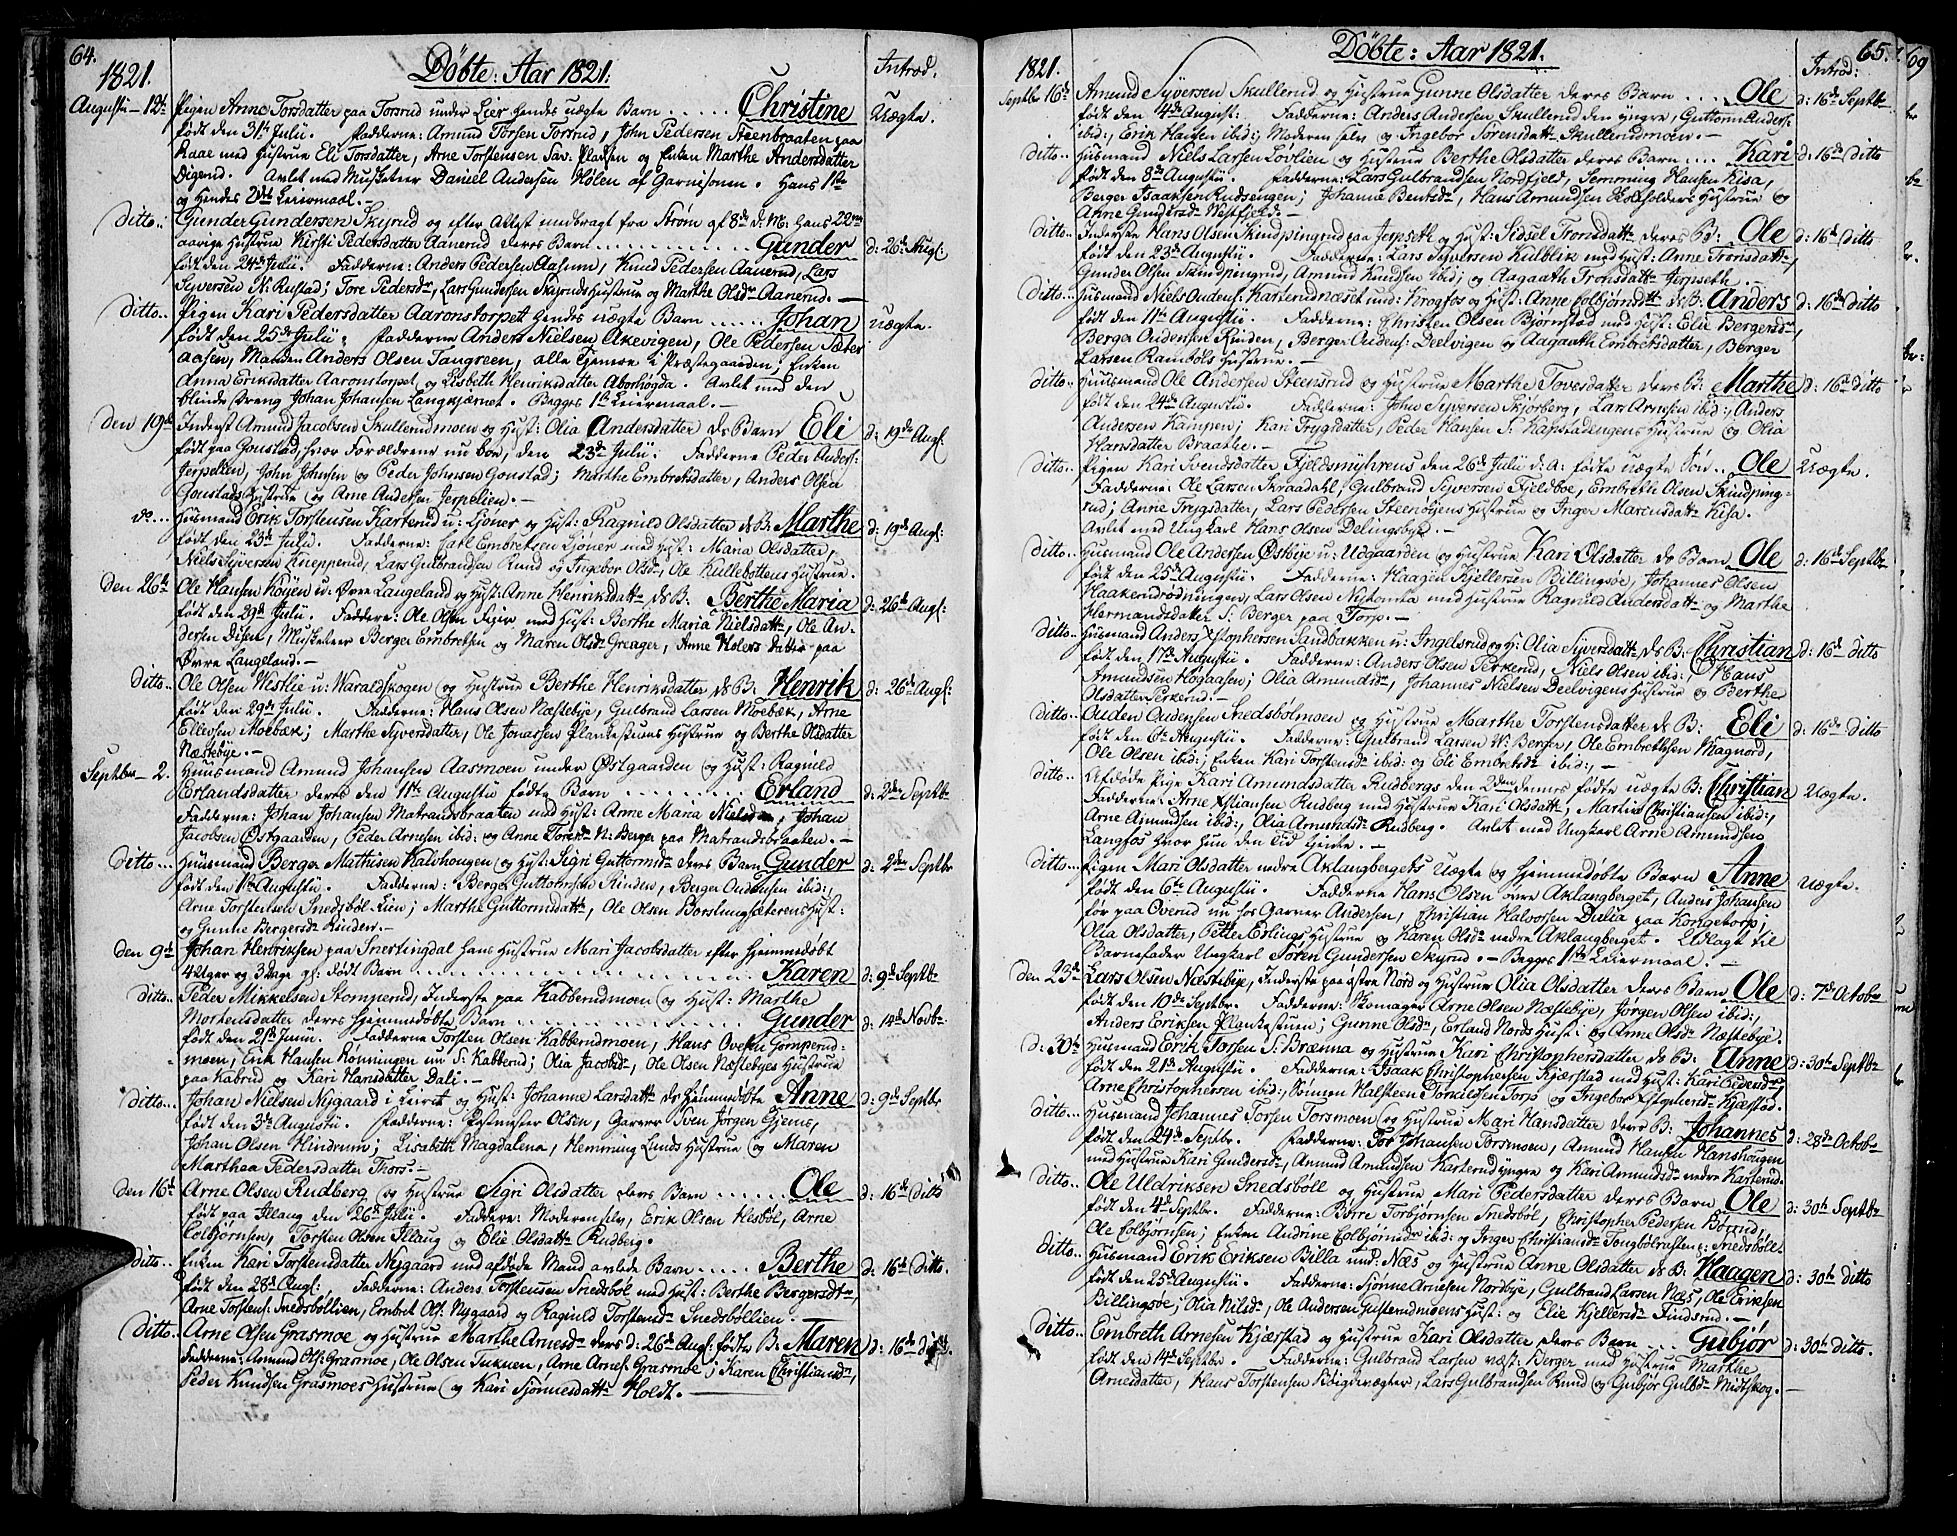 64.
1821.
Döbte: Aar 1821.
Introd.
Augusti – 12te Pigen Anne Torsdatter paa Torsrud under Lier hendes uægte Barn ..... Christine Uægte.
født den 31te Julii. Fadderne: Amund Torsen Torsrud, John Pedersen Steenbraaten paa
Raae med Hustrue Eli Torsdatter, Arne Torstensen Sav. Pladsen og Enken Marthe Andersdatter
Digerud. Avlet med Musketeer Daniel Andersen Holen af Garnisonen. Hans 1ste
og hendes 2det Leiermaal. –
Ditto.. Gunder Gundersen Skyrud og efter Attest medbragt fra Strøm af 8de d: M: hans 22
aarige Hustrue Kirsti Pedersdatter Aanerud deres Barn .......... Gunder d: 26de Augl:
født den 24de Julii. Fadderne: Anders Pedersen Aasum, Knud Pedersen Aanerud, Lars
Syversen N: Rustad; Tore Pedersdr, Lars Gundersen Skyruds Hustrue og Marthe Olsdr Aanerud. –
Ditto.. Pigen Kari Pedersdatter Aaronstorpet hendes uægte Barn ..... Johan uægte.
født den 25de Julii; Fadderne Anders Nielsen Akevigen, Ole Pedersen Sæter
aasen, Manden Anders Olsen Tangreen, alle tjenere i Præstegaarden, Enken
Anna Eriksdatter Aaronstorpet og Lisbeth Henriksdatter Aborhøgda. Avlet med den
blinde Dreng Johan Johansen Langkjærnet. Begges 1te Leiermaal. –
Den 19de Inderst Amund Jacobsen Skullerudmoen og Hust: Olia Andersdatter Ds Barn Eli d: 19de Augl.
født paa Gonstad, hvor Forældrene nu boe, den 23de Julii: Fadderne Peder Anders:
Jerpelien, John Johnsen og Peder Johnsen Gonstad; Marthe Embretsdatter, Anders Olsen
Gonstads Hustrue og Arne Andersen Jerpelien. –
do... Huusmand Erik Torstensen Karterud u: Ljøner og Hust: Ragnild Olsdatter Ds B: Marthe d: 19de Augl:
født den 23de Julii. Fadderne: Carl Embretsen Ljøner med Hust: Maria Olsdatter,
Niels Syversen Knepperud, Lars Gulbrandsen Rund og Ingeber Olsdr, Ole Kullebottens Hustrue.
Den 26de Ole Hansen Køyen u: Øvre Langeland og Hust: Anne Henriksdattr Ds B: Berthe Maria d: 26de Augl:
født den 29de Julii. Faddere: Ole Olsen med Hust: Berthe Maria Nielsdattr, Ole An-
dersen Disen, Musketeer Berger Embretsen og Maren Olsdr Greager, Anne Holers datter paa
Øvre Langeland. –
Ditto.. Ole Olsen Westlie u: Waraldskogen og Hustrue Berthe Henriksdatter Ds B: Henrik d: 26de Augl:
født den 29de Julii. Fadderne: Hans Olsen Næstebye, Gulbrand Larsen Moebæk, Arne
Ellevsen Moebæk; Marthe Syversdatter, Ole Jonassen Plankestuens Hustrue og Berthe Olsdatter
Næstebye. –
Septbr – 2. Huusmand Amund Johansen Aasmoen under Østgaarden og Hust: Ragnild
Erlandsdatter deres den 11te Augustii fødte Barn ......... Erland d: 2den Septb
Fadderne: Johan Johansen Matrandsbraaten med Hust: Anne Maria Nielsd, Johan
Jacobsen Østgaarden, Peder Arnesen ibid: og Anne Torsdr N: Berger paa Matrandsbraaten. –
Ditto... Huusmand Berger Mathisen Kalvhougen og Hust: Sigri Guttormsdr deres Barn Gunder d: 2den Septbr
født den 1te Augustii. Fadderne: Berger Guttormsen Rinden, Berger Oudensen ibid:,
Arne Torstensen Snedsböl-Lien; Marthe Guttormsdattr, Ole Olsen Borslungsæterens Hust:
og Gunne Bergersdr Rinden. –
Den 9de Johan Henriksen paa Snertingdal hans Hustrue Mari Jacobsdatter efter hjemmedøbt
4 Uger og 3 Dage gl: født Barn .......... Karen d: 9de Septbr
Ditto.. Peder Mikkelsen Stomperud, Inderste paa Kabberudmoen og Hust: Marthe
Mortensdatter deres hjemmedøbte Barn .......... Gunder d: 14de Novbr
født den 21de Junii. Fadderne Torsten Olsen Kabberudmoen, Hans Oversen Gomperud-
moen, Erik Hansen Konningen nu S: Kabberud; Olia Jacobsdr, Ole Olsen Næstebyes Hustrue
paa Kabrud og Kari Hansdatter Dali. –
Ditto.. Johan Nielsen Nygaard i Leiret og Hust: Johanne Larsdattr Ds hjemmedøbte Anne d: 9de Septbr
født den 3de Augustii. Fadderne: Postmester Olsen, Garver Sven Jørgen Gjems,
Johan Olsen Hindrum; Lisabeth Magdalena, Hemming Lunds Hustrue og Maren
Marthea Pedersdatter Thors: –
Den 16de Arne Olsen Rudberg og Hustrue Sigri Olsdatter deres Barn ...... Ole d: 16de Ditto
født paa Illaug den 26de Julii. Faddere: Moderen selv, Erik Olsen Hesböl, Arne
Colbjørnsen, Torsten Olsen Illaug og Elie Olsdattr Rudberg.
Ditto.. Enken Kari Torstensdatter Nygaard med afdøde Mand avlede Barn ..... Berthe d: 16de Ditto.
født den 28de Augl:, Fadderne: Anders Torstensen Snedsböl med Hust: Berthe Bergersdtr,
Arne Torstens: Snedsböllien, Embret Ols: Nygaard og Ragnild Torstensdr Snedsböllien. –
Ditto.. Arne Olsen Grasmoe og Hustrue Marthe Arnesdr deres d: 26de Augl: fødte B: Maren d: 16de Ditto.
Fadderne: Amund Ols: Grasmoe, Ole Olsen Tuknen, Arne Arnes: Grasmoe; Karen Christiansdr,
Peder Knudsen Grasmoes Hustrue og Kari Sjønnesdattr Holdt. –
65.
1821.
Döbte: Aar 1821.
Introd:
Septbr 16de Amund Syversen Skullerud og Hustrue Gunne Olsdatter deres Barn .... Ole d: 16de Septbr
født den 4de August: Fadderne: Anders Andersen Skullerud den yngre, Guttorm Anders:
ibid:, Erik Hansen ibid:; Moderen selv og Ingebor Torensdattr Skullerudmoen. –
Ditto.. Huusmand Niels Larsen Løvlien og Hustrue Berthe Olsdatter deres Barn .... Kari d: 16de Ditto
født den 8de Augustii. Fadderne: Lars Gulbrandsen Nordfjeld, Hemming Hansen Kisa,
Berger Isaaksen Rudsengen; Johanne Bentsdr, Hans Amundsen Holtefolders Hustrue og
Anne Gundersdr Westfjeld. –
Ditto.. Inderste Hans Olsen Skindpingrud paa Jerpseth og Hust: Sidsel Tronsdattr deres B: Ole d: 16de Ditto
født den 23de Augustii. Fadderne: Lars Syversen Kulblik med Hust: Anne Tronsdattr,
Gunder Olsen Skindpingrud, Amund Knudsen ibid; og Aagaath Tronsdattr Jerpseth.
Ditto... Huusmand Niels Oudens: Karterudnæset und: Krogfos og Hust: Anne Colbjørnsdtr Ds B: Anders d: 16de Ditto
født den 11te Augustii. Fadderne: Christen Olsen Bjørnstad med Hust: Elie Bergersdr,
Berger Oudensen Rinden, Berger Oudens: Deelvigen og Aagaath Embretsdatter, Berger
Larsen Rambøls Hustrue. –
Ditto.. Huusmand Ole Andersen Steensrud og Hustrue Marthe Toversdatter deres B: Marthe d: 16de Ditto
født den 24de Augustii. Fadderne: John Syversen Skjørberg, Lars Arnesen ibid:, Anders
Andersen Kampen; Kari Trygsdatter, Peder Hansen S. Kapstadengens Hustrue og Olia
Hansdatter Braathe. –
Ditto.. Pigen Kari Svendsdatter Fjeldsmyhrens den 26de Julii d: A: fødte uægte Søn .. Ole Uægte.
Fadderne: Ole Larsen Skraadahl, Gulbrand Syversen Fjeldboe, Embreth Olsen Skindping-
rud; Anne Trygsdatter, Lars Pedersen Steenbyens Hustrue og Inger Marcusdattr Kisa.
Avlet med Ungkarl Hans Olsen Delingsbye. –
Ditto.. Huusmand Ole Andersen Østbye u: Udgaarden og Hustrue Kari Olsdatter Ds Barn Ole d: 16de Septbr
født den 25de Augustii. Fadderne: Haagen Kjellersen Billingsøe, Johannes Olsen
Haakenrødningen, Lars Olsen Nytomta med Hustrue Ragnild Andersdattr og Marthe
Hermandsdatter S: Berger paa Torp. –
Ditto.. Huusmand Anders Xstophersen Sandbakken u: Ingelsrud og H: Olia Syversdattr Ds B: Christian d: 16de Ditto
født den 17de Augustii. Fadderne: Anders Olsen Perkerud, Niels Olsen ibid:, Hans
Amundsen Högaasen; Olia Amundsdr, Johannes Nielsen Deelvigens Hustrue og Berthe
Olsdatter Perkerud. –
Ditto.. Ouden Oudensen Snedsbölmoen og Hustrue Marthe Torstensdatter Ds B: Eli d: 16de Ditto
født den 6te Augustii. Fadderne: Gulbrand Larsen W: Berger, Ole Embrethsen Magnord,
Ole Olsen ibid:; Enken Kari Torstensdr ibid: og Eli Embretsdr ibid:, –
Ditto.. Afdøde Pige Kari Amundsdatter Rudbergs den 2den dennes fødte uægte B: Christian Uægte.
Fadderne: Arne Xstiansen Rudberg med Hustrue Kari Olsdattr, Martin Christiansen ibid:,
Arne Amundsen ibid:, Olia Amundsdr Rudberg. Avlet med Ungkarl Arne Amundsen
Langfos hvor hun den Tid tjente. –
Ditto... Pigen Mari Olsdatter nedre Aklangbergets Uægte og hjemmedøbte Barn Anne Uægte.
født den 6te Augustii. Fadderne Hans Olsen øvre Aklangberget, Anders Johansen
før paa Overud nu hos Garver Andersen, Christian Halvorsen Dulia paa Kongetorp;
Olia Olsdatter, Petter Erlings Hustrue og Karen Olsdr nedre Aklangberget. Udlagt til
Barnefader Ungkarl Søren Gundersen Skyrud. – Begges 1ste Leiermaal. –
Den 23de Lars Olsen Næstebye, Inderste paa østre Nord og Hustrue Olia Olsdatter deres Barn Ole d: 7de Octobr
født den 10de Septbr. Fadderne: Skomager Arne Olsen Næstebye, Jørgen Olsen ibid:,
Anders Eriksen Plankestuen; Gunne Olsdr, Erland Nords Hust: og Arne Olsdr Næstebye.
D: 30te Huusmand Erik Torsen S: Brænna og Hustrue Kari Christophersdatter Ds B: Anne d: 30te Septbr
født den 21de Augustii. Fadderne: Isaak Christophersen Kjærstad med Hust: Kari Pedersdr,
Arne Christophersen ibid:, Simen Halsteen Torkildsen Torp og Ingebor Xstophersdr Kjæstad.
Ditto... Huusmand Johannes Torsen Torsmoen og Hustrue Mari Hansdatter deres B: Johannes d: 28de Octobr
født den 24de Septbr. Fadderne: Tor Johansen Torsmoen, Amund Hansen Hanshougen
med Hustrue Kari Gundersdr, Amund Amundsen Karterud yngre og Kari Amundsdr nedre Karterud.
Ditto.. Ole Uldriksen Snedsböll og Hustrue Mari Pedersdatter deres Barn Ole d: 30te Septbr
født den 4de Septbr. Fadderne: Borre Torbjørnsen Snedsböl, Christopher Pedersen Børud,
Ole Colbjørnsen; Enken Andrine Colbjørnsdr ibid: og Inger Christiansdr Snedsböll.
Ditto.. Huusmand Erik Eriksen Billa und: Næs og Hustrue Anne Olsdatter Ds B: Haagen d: 30te Ditto
født den 25de Augustii. Fadderne: Sjønne Arnesen Norbye, Gulbrand Larsen Næs, Ole Eriksen
Billingsøe; Olia Nilsdr, Ole Andersen Gusterudmoens Hust: og Elie Kjellersdr Findsrud. –
Ditto.. Embreth Arnesen Kjærstad og Hustrue Kari Olsdatter deres Barn ... Gubjør d: 30te Ditto.
født den 14de Septbr. Fadderne: Gulbrand Larsen væst: Berger med Hustrue Marthe
Arnesdatter, Hans Torstensen Skigivægter, Lars Gulbrandsen Rund og Gubjør Gulbdr Midtskog. –
69